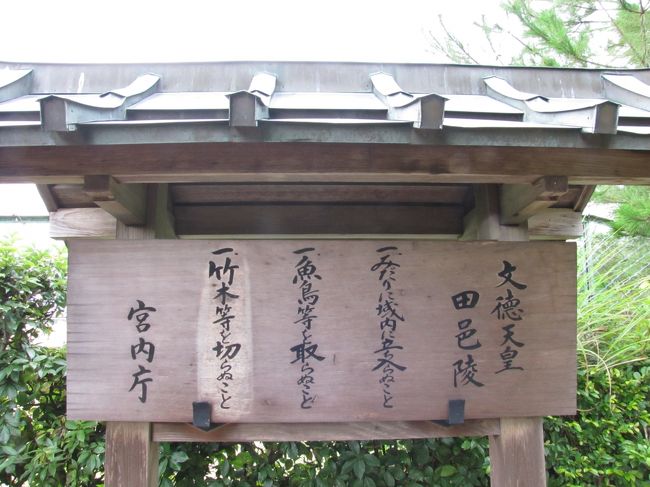 文徳天皇
田邑陵
一みだりに域内に立ち入らぬこと
一魚鳥等を取らぬこと
一竹木等を切らぬこと
宮内庁